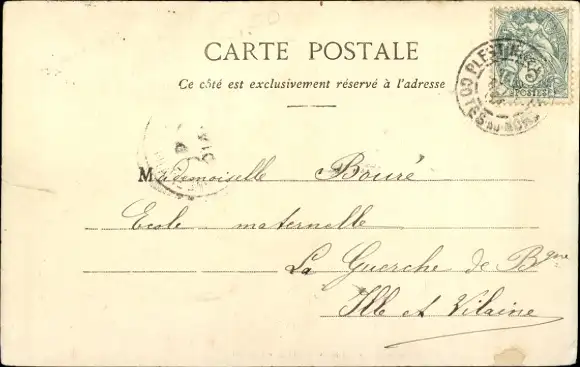 CARTE POSTALE
Ce côté est exclusivement réservé à l'adresse
POSTES
COTES-DU-NORD
Mademoiselle Bouré
Ecole maternelle
La Guerche de Bgne
Ille et Vilaine